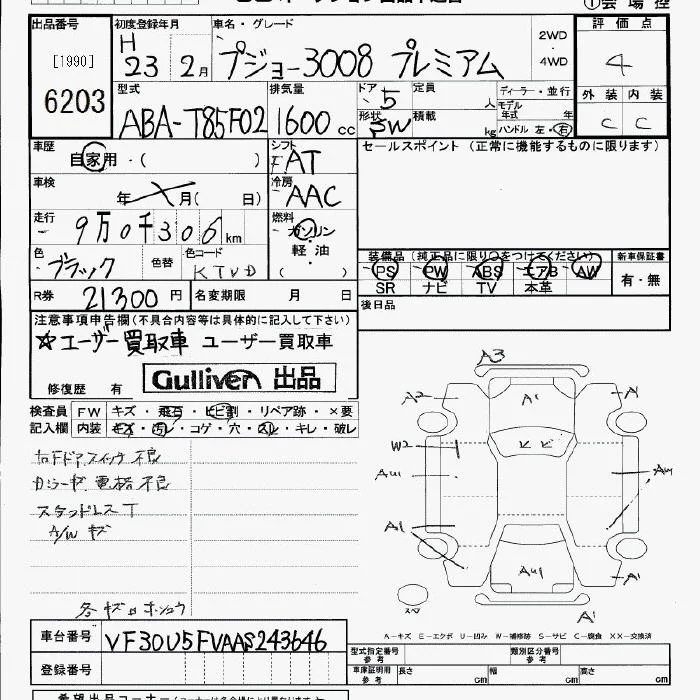 ①会場控
出品番号 初度登録年月 車名・グレード 評価点
[1990] H 23 2月 プジョー3008 プレミアム 2WD・4WD 4
6203
型式 排気量 ドア 定員 ディーラー・並行 外装 内装
ABA-T85F02 1600cc 5 人 モデル年式 年 C C
形状 SW 積載 kg ハンドル 左・右
車歴 自家用・( ) シフト FAT セールスポイント (正常に機能するものに限ります)
車検 年 月( 日) 冷房 AAC
走行 9万0千306km 燃料 ガソリン 軽油 ( )
色 ブラック 色替 色コード KTVD
装備品 (純正品に限り○をつけてください) 新車保証書
PS PW ABS エアB AW 有・無
SR ナビ TV 本革
R券 21300円 名変期限 月 日 後日品
注意事項申告欄(不具合内容等は具体的に記入して下さい)
☆ユーザー買取車 ユーザー買取車
Gulliver 出品
修復歴 有
検査員 FW キズ・飛石・ヒビ割・リペア跡・×要
記入欄 内装 キズ・汚レ・コゲ・穴・スレ・キレ・破レ
右Fドアスイッチ不良
不良
スタッドレスT
A/Wキズ
A3
A2 A1 A1
W2 ヒビ
AU1 AW
A1
AU1 A1
A1
A-キズ E-エクボ U-凹み W-補修跡 S-サビ C-腐食 XX-交換済
車台番号 VF30U5FVAAS243646
型式指定番号 参考 類別区分番号 参考
登録番号 車庫証明用 参考 長さ cm 幅 cm 高さ cm
希望出品コーナー